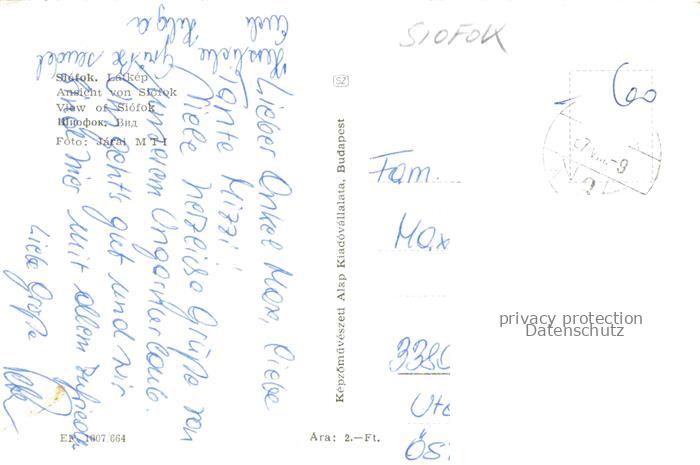 SIOFOK
Siófok. Látkép
Ansicht von Siófok
View of Siófok
Шиофок. Вид
Foto: Járai MTI
Lieber Onkel Max, liebe
Tante Mizzi!
Viele herzliche Grüße von
unserem Ungarnurlaub.
Uns geht's gut und wir
sind hier mit allem zufrieden
Liebe Grüße
Herzliche Grüße sendet
Euch Helga
Képzőművészeti Alap Kiadóvállalata, Budapest
SZ
60
-9
Fam.
Max
3380
ÖS
privacy protection
Datenschutz
EF 1007/664
Ára: 2.—Ft.